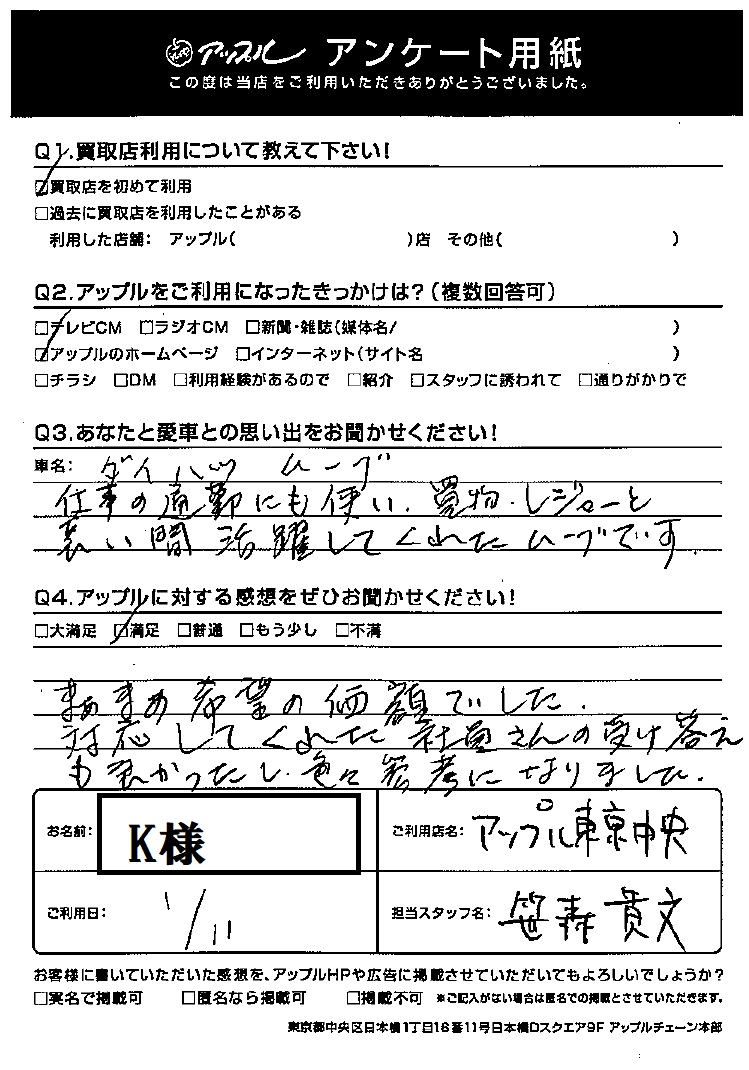 アップル アンケート用紙
この度は当店をご利用いただきありがとうございました。
Q1.買取店利用について教えて下さい!
☑買取店を初めて利用
□過去に買取店を利用したことがある
利用した店舗: アップル( )店 その他( )
Q2.アップルをご利用になったきっかけは?(複数回答可)
□テレビCM □ラジオCM □新聞・雑誌(媒体名/ )
☑アップルのホームページ □インターネット(サイト名 )
□チラシ □DM □利用経験があるので □紹介 □スタッフに誘われて □通りがかりで
Q3.あなたと愛車との思い出をお聞かせください!
車名: ダイハツ ムーヴ
仕事の通勤にも使い、買物・レジャーと
長い間活躍してくれたムーヴです
Q4.アップルに対する感想をぜひお聞かせください!
□大満足 ☑満足 □普通 □もう少し □不満
まあまあ希望の価額でした.
対応してくれた社員さんの受け答え
も良かったし、色々参考になりました.
お名前: K様
ご利用店名: アップル東京中央
ご利用日: 1/11
担当スタッフ名: 笹森貴文
お客様に書いていただいた感想を、アップルHPや広告に掲載させていただいてもよろしいでしょうか?
□実名で掲載可 □匿名なら掲載可 □掲載不可 ※ご記入がない場合は匿名での掲載とさせていただきます。
東京都中央区日本橋1丁目16番11号日本橋Dスクエア9F アップルチェーン本部